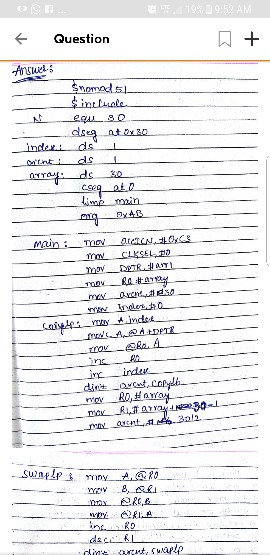 19% 9:52 AM
Question
Answer:
$nomod51
$include
N equ 30
dseg at 0x30
index: ds 1
arcnt: ds 1
array: ds 30
cseg at 0
ljmp main
org 0xAB
main: mov OSCICN, #0xC3
mov CLKSEL, #0
mov DPTR, #arr1
mov R0, #array
mov arcnt, #30
mov index, #0
copylp: mov A, index
movc A, @A+DPTR
mov @R0, A
inc R0
inc index
djnz arcnt, copylp
mov R0, #array
mov R1, #array+30-1
mov arcnt, #30/2
swaplp: mov A, @R0
mov B, @R1
mov @R0, B
mov @R1, A
inc R0
dec R1
djnz arcnt, swaplp